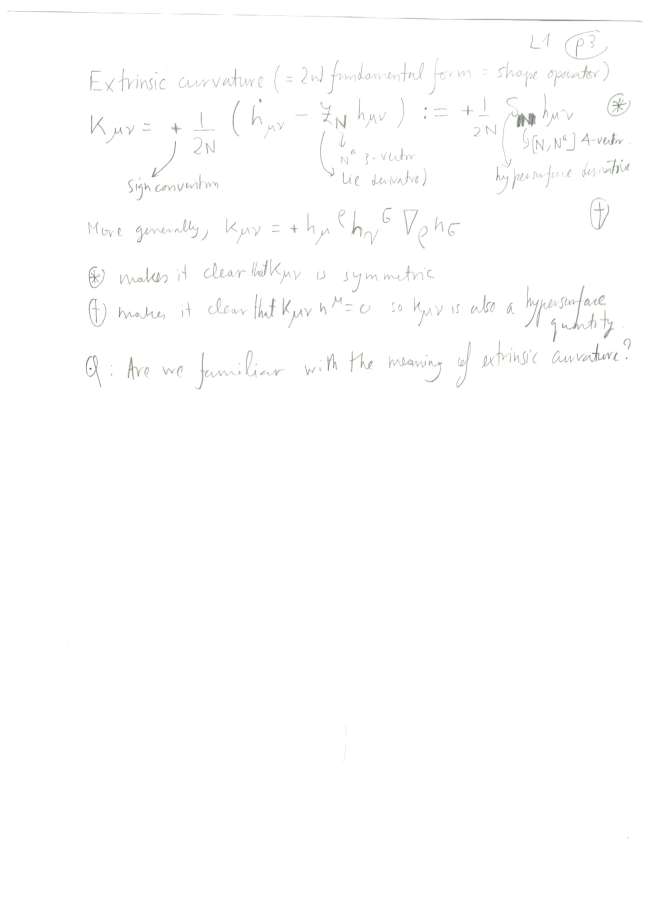 L1 p3
Extrinsic curvature (= 2nd fundamental form = shape operator)
Kμν = + 1/2N (ḣμν − £N hμν) := + 1/2N δ hμν ⊛
sign convention
Nᵃ 3-vector
Lie derivative)
[N, Nᵃ] 4-vector.
hypersurface derivative
More generally, Kμν = + hμ^ρ hν^σ ∇ρ nσ (†)
⊛ makes it clear that Kμν is symmetric
(†) makes it clear that Kμν n^μ = 0 so Kμν is also a hypersurface
quantity.
Q: Are we familiar with the meaning of extrinsic curvature?